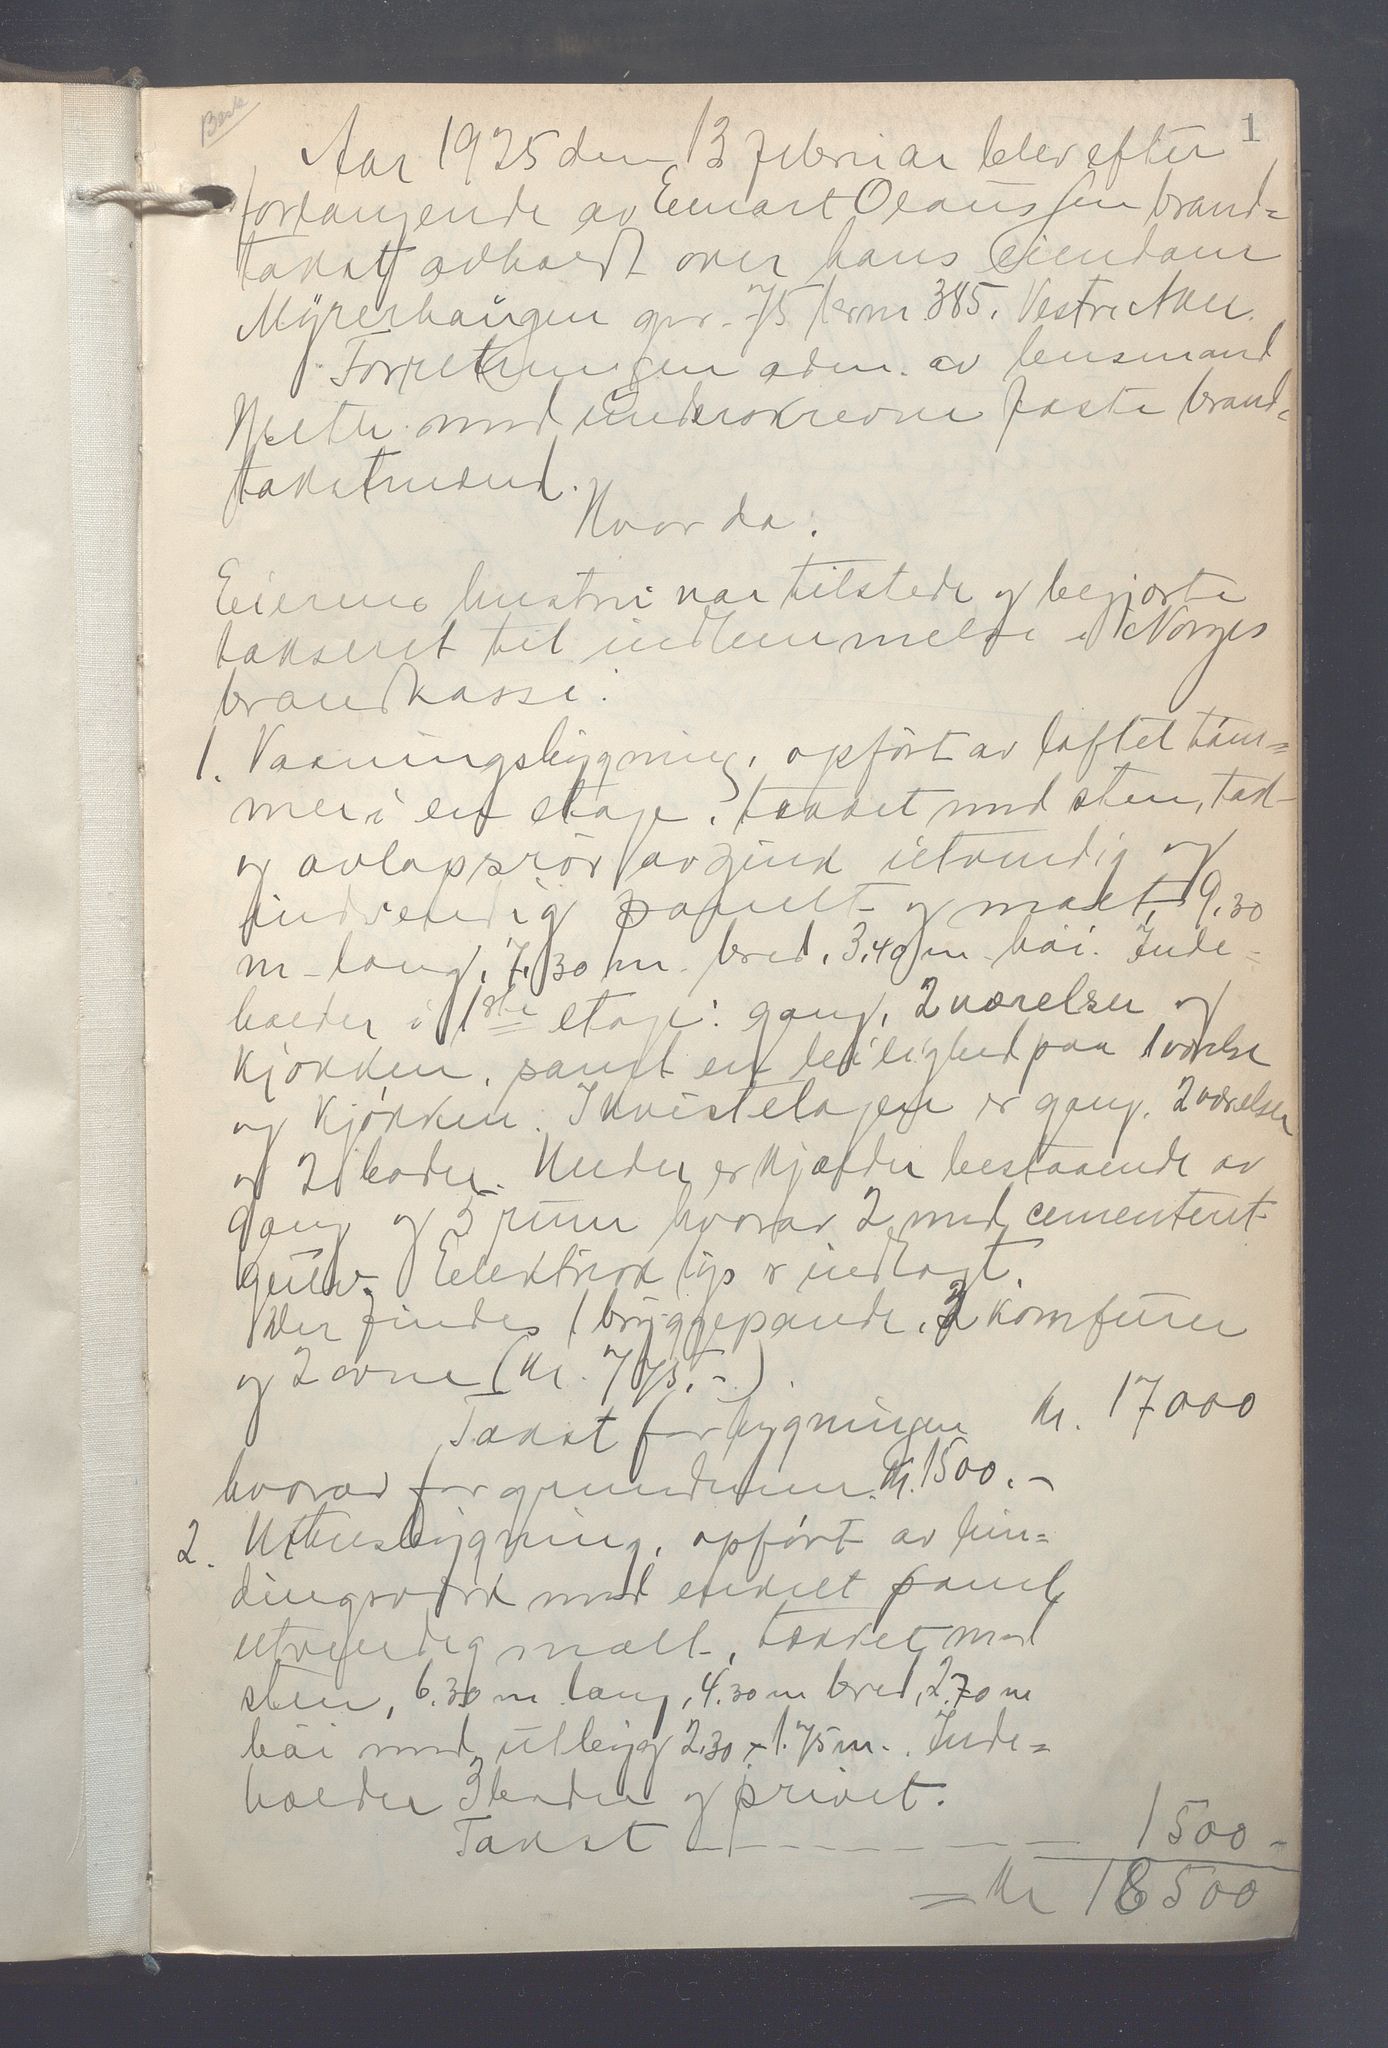 Besk
1
Aar 1925 den 13 februar blev efter
forlangende av Einart Olaussen brand=
takst avholdt over hans eiendom
Myrerhaugen gnr. 75 brnr 385. Vestre Aker.
Forretningen adm. av lensmand
med undskrevne faste brand=
takstmænd.
Hvorda:
Eierens hustru var tilstede og begjærte
takseret til indlemmelse i Norges
brandkasse:
1. Vaaningsbygning, opført av laftet tøm=
mer i en etage, tækket med sten, tak-
og avløpsrør av zink utvendig og
indvendig panelt og malt, 9.30
m lang, 7.30 m. bred, 3.40 m høi. Inde=
holder i 1ste etage: gang, 2 værelser og
kjøkken, samt en leilighed paa 1 værelse
og kjøkken. I kvistetagen er gang, 2 værelser
og 2 boder. Under er kjælder bestaaende av
gang og 5 rum hvorav 2 med cementert
gulv. Elektrisk lys er indlagt.
Der findes 1 bryggepande, 2 komfurer
og 2 ovne (kr. 775.-).
Takst for bygningen kr. 17000
hvorav for grundmur kr. 1500.-
2. Uthusbygning, opført av bin=
dingsverk med enkelt panel,
utvendig malt, tækket med
sten, 6.30 m lang, 4.30 m bred, 2.70 m
høi med utbygg 2.30 x 1.75 m. Inde=
holder 3 boder og privet.
Takst - - - - - - 1500 -
= Kr 18500